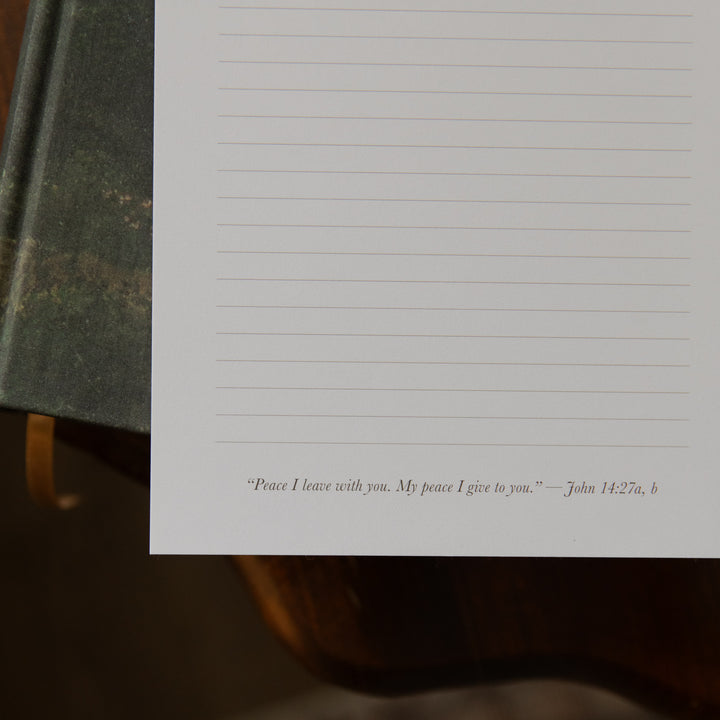 “Peace I leave with you. My peace I give to you.” — John 14:27a, b